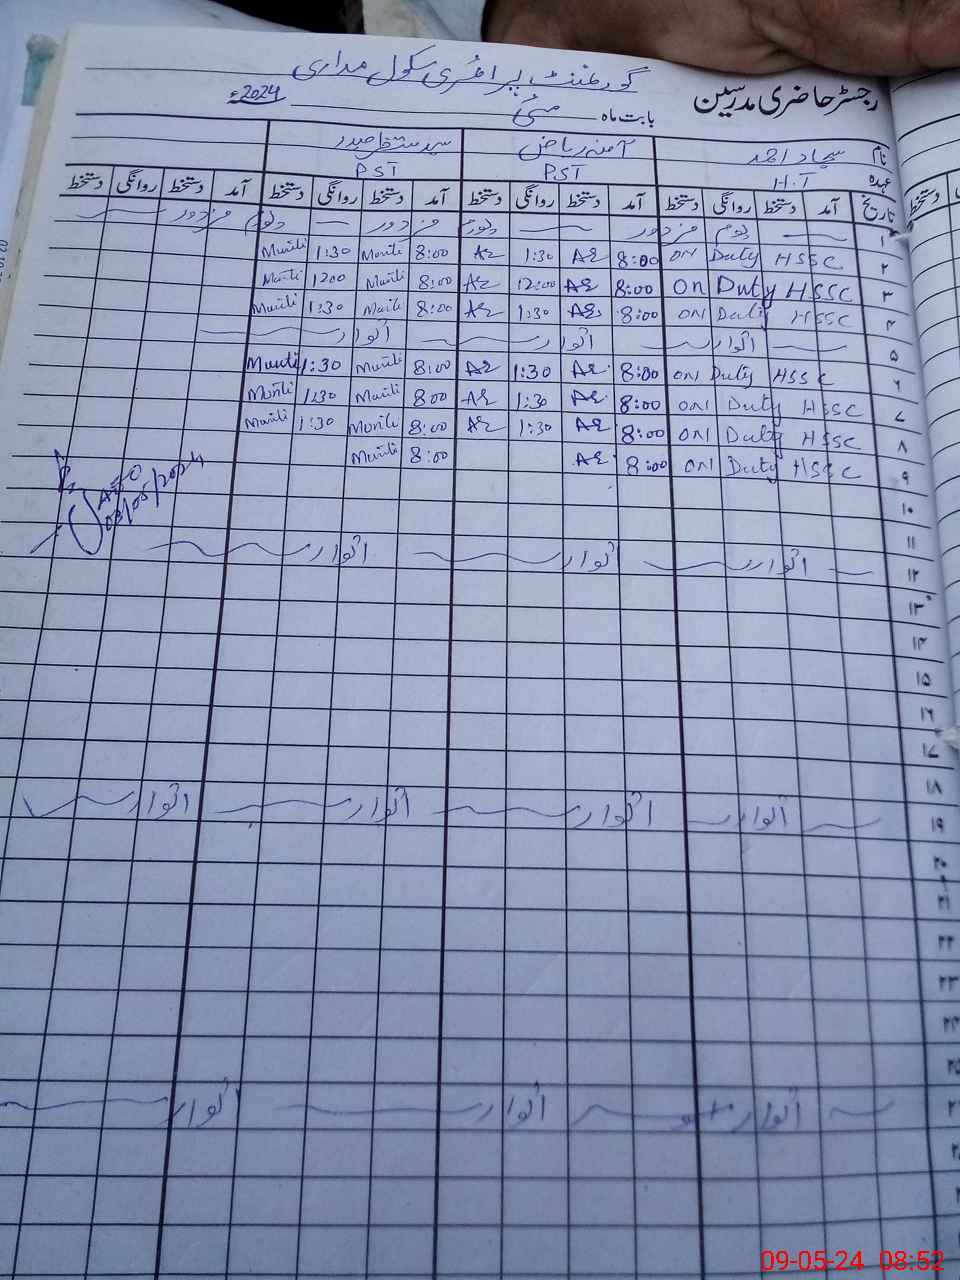 گورنمنٹ پرائمری سکول مداری
رجسٹر حاضری مدرسین
بابت ماہ مئی 2024ء
نام سجاد احمد آمنہ ریاض سید حیدر
عہدہ H.T PST PST
تاریخ آمد دستخط روانگی دستخط آمد دستخط روانگی دستخط آمد دستخط روانگی دستخط آمد دستخط روانگی دستخط
۱ یوم مزدور یوم مزدور یوم مزدور
۲ ON Duty HSSC 8:00 AR 1:30 AR 8:00 1:30
۳ ON Duty HSSC 8:00 AR 12:00 AR 8:00 1200
۴ ON Duty HSSC 8:00 AR 1:30 AR 8:00 1:30
۵ اتوار اتوار اتوار
۶ ON Duty HSSC 8:00 AR 1:30 AR 8:00 1:30
۷ ON Duty HSSC 8:00 AR 1:30 AR 8:00 1:30
۸ ON Duty HSSC 8:00 AR 1:30 AR 8:00 1:30
۹ ON Duty HSSC 8:00 AR 8:00
AEO
03/05/2024
۱۰
۱۱
۱۲ اتوار اتوار اتوار
۱۳
۱۴
۱۵
۱۶
۱۷
۱۸
۱۹ اتوار اتوار اتوار اتوار
۲۰
۲۱
۲۲
۲۳
۲۴
۲۵
۲۶ اتوار اتوار اتوار
09-05-24 08:52